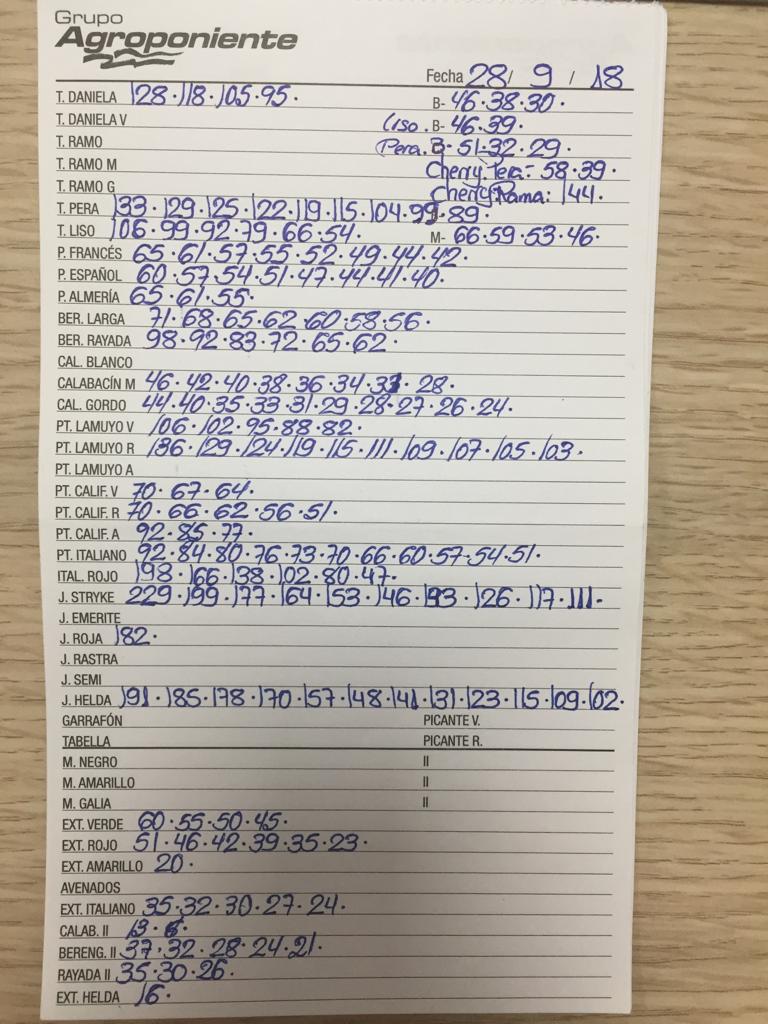 Grupo
Agroponiente
Fecha 28/ 9 / 18
T. DANIELA 128·118·105·95· B- 46·38·30·
T. DANIELA V Liso. B- 46·39·
T. RAMO Pera. B- 51·32·29·
T. RAMO M Cherry Pera: 58·39·
T. RAMO G Cherry Rama: 144·
T. PERA 133·129·125·122·119·115·104·99·89·
T. LISO 106·99·92·79·66·54· M- 66·59·53·46·
P. FRANCÉS 65·61·57·55·52·49·44·42·
P. ESPAÑOL 60·57·54·51·47·44·41·40·
P. ALMERÍA 65·61·55·
BER. LARGA 71·68·65·62·60·58·56·
BER. RAYADA 98·92·83·72·65·62·
CAL. BLANCO
CALABACÍN M 46·42·40·38·36·34·33·28·
CAL. GORDO 44·40·35·33·31·29·28·27·26·24·
PT. LAMUYO V 106·102·95·88·82·
PT. LAMUYO R 136·129·124·119·115·111·109·107·105·103·
PT. LAMUYO A
PT. CALIF. V 70·67·64·
PT. CALIF. R 70·66·62·56·51·
PT. CALIF. A 92·85·77·
PT. ITALIANO 92·84·80·76·73·70·66·60·57·54·51·
ITAL. ROJO 198·166·138·102·80·47·
J. STRYKE 229·199·177·164·153·146·126·117·111·
J. EMERITE
J. ROJA 182·
J. RASTRA
J. SEMI
J. HELDA 191·185·178·170·157·148·141·131·123·115·109·102·
GARRAFÓN PICANTE V.
TABELLA PICANTE R.
M. NEGRO II
M. AMARILLO II
M. GALIA II
EXT. VERDE 60·55·50·45·
EXT. ROJO 51·46·42·39·35·23·
EXT. AMARILLO 20·
AVENADOS
EXT. ITALIANO 35·32·30·27·24·
CALAB. II 13·
BERENG. II 37·32·28·24·21·
RAYADA II 35·30·26·
EXT. HELDA 16·